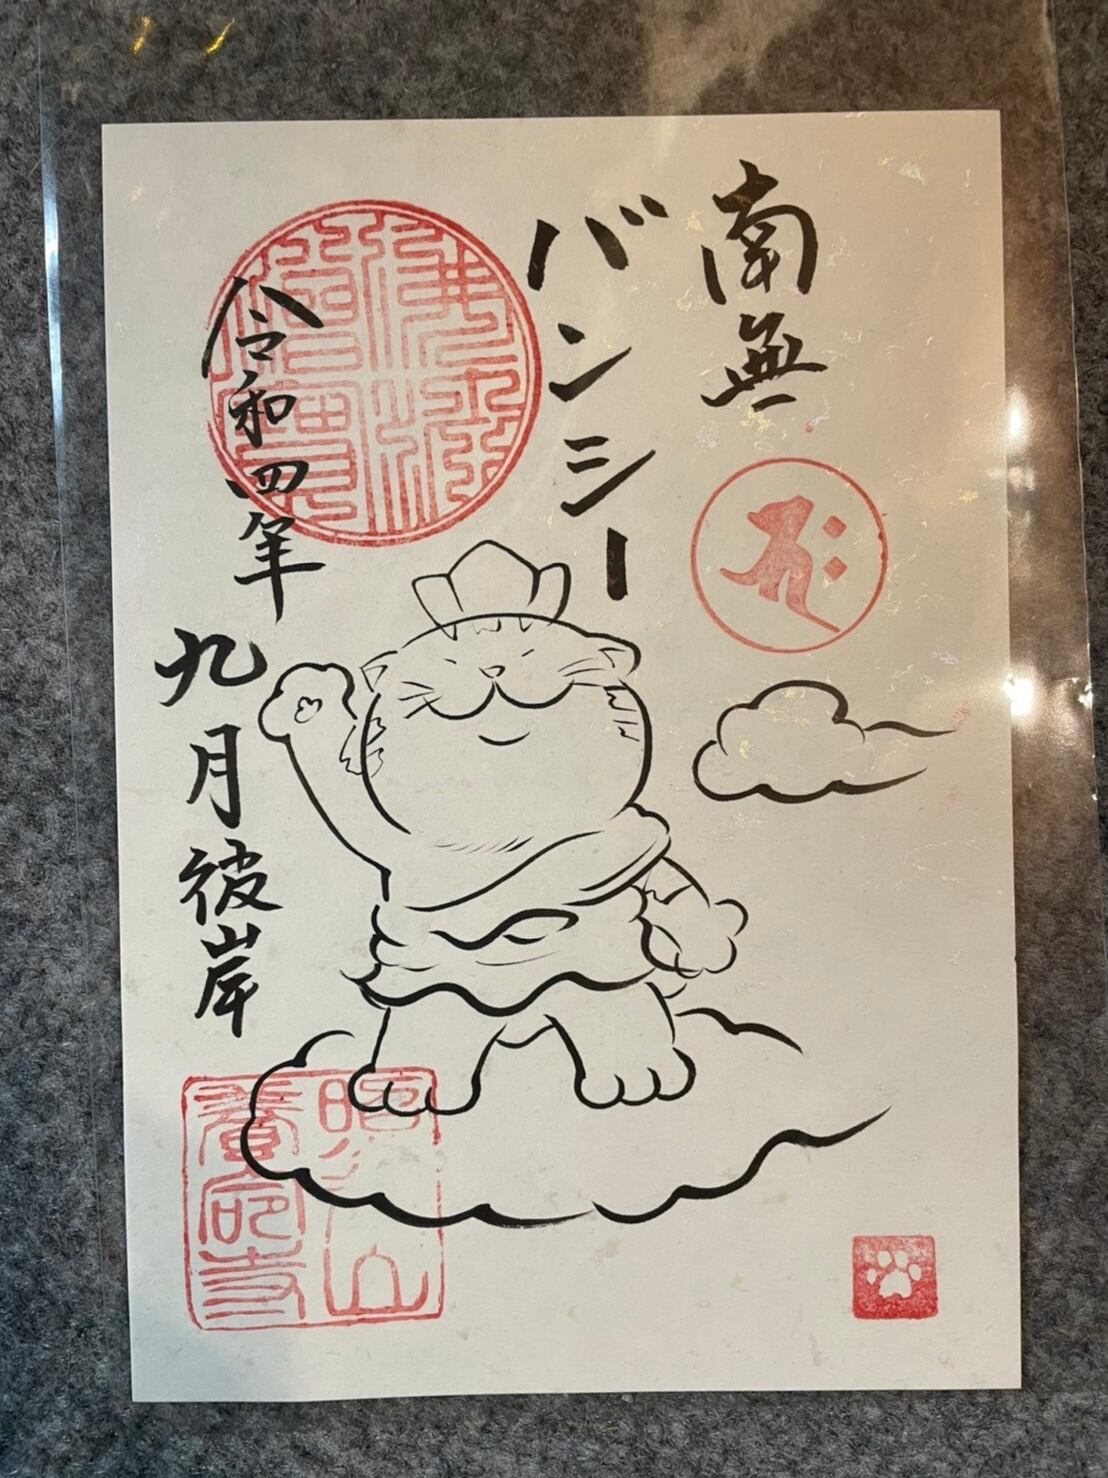 南無
バンシー
令和四年
九月彼岸